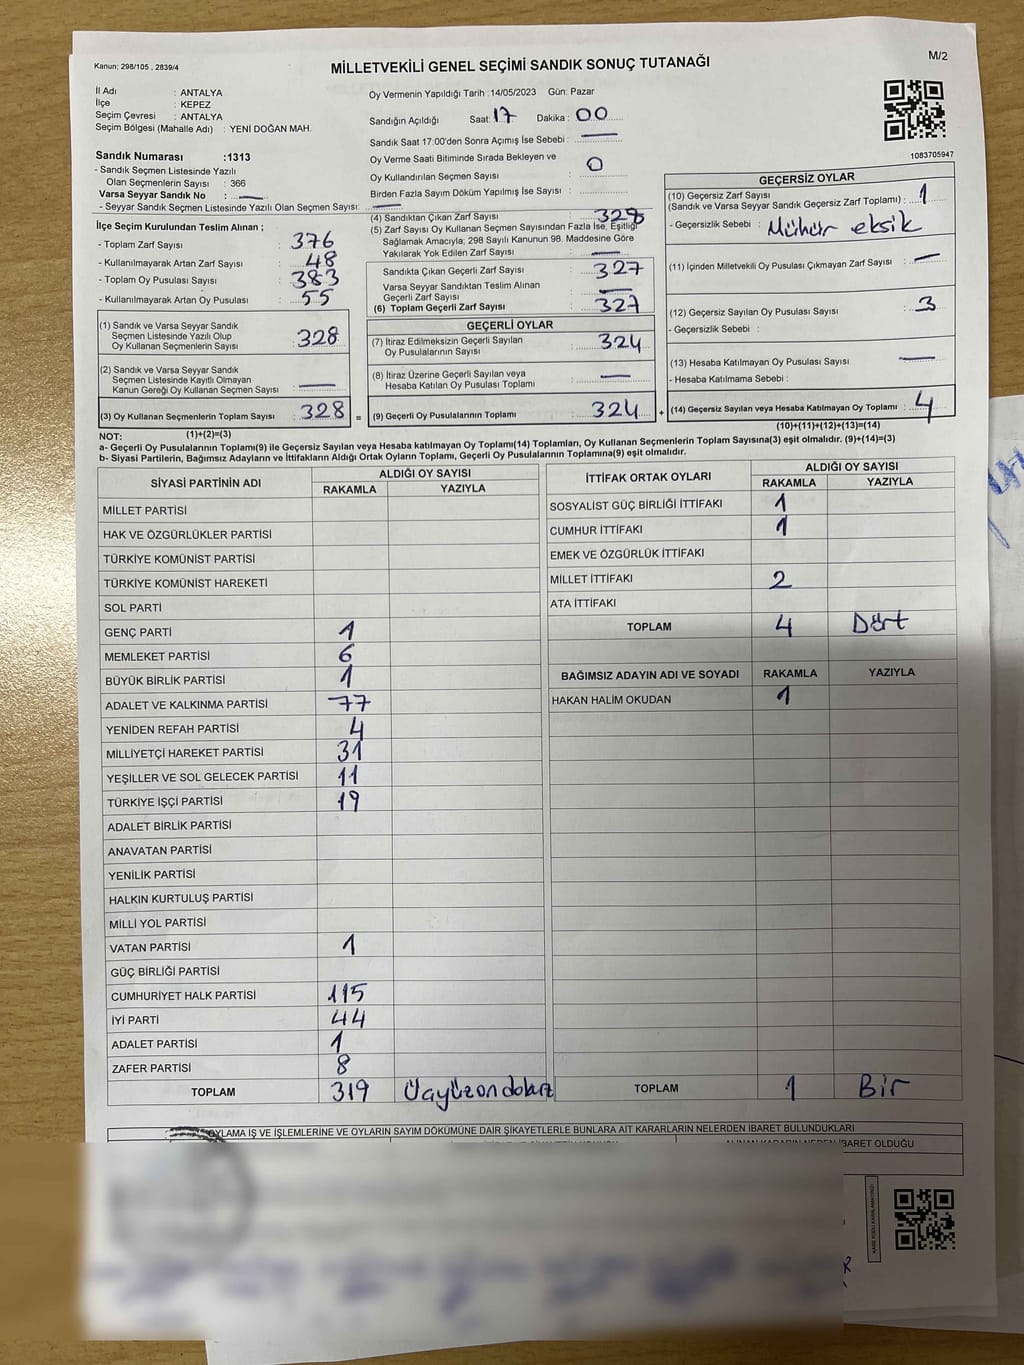 Kanun: 298/105 , 2839/4
MİLLETVEKİLİ GENEL SEÇİMİ SANDIK SONUÇ TUTANAĞI
M/2
İl Adı : ANTALYA
İlçe : KEPEZ
Seçim Çevresi : ANTALYA
Seçim Bölgesi (Mahalle Adı) : YENİ DOĞAN MAH.
Sandık Numarası :1313
- Sandık Seçmen Listesinde Yazılı
Olan Seçmenlerin Sayısı : 366
Varsa Seyyar Sandık No : —
- Seyyar Sandık Seçmen Listesinde Yazılı Olan Seçmen Sayısı: —
Oy Vermenin Yapıldığı Tarih :14/05/2023 Gün: Pazar
Sandığın Açıldığı Saat: 17 Dakika : 00
Sandık Saat 17:00'den Sonra Açımış İse Sebebi : —
Oy Verme Saati Bitiminde Sırada Bekleyen ve
Oy Kullandırılan Seçmen Sayısı : 0
Birden Fazla Sayım Döküm Yapılmış İse Sayısı :
1083705947
İlçe Seçim Kurulundan Teslim Alınan ;
- Toplam Zarf Sayısı : 376
- Kullanılmayarak Artan Zarf Sayısı : 48
- Toplam Oy Pusulası Sayısı : 383
- Kullanılmayarak Artan Oy Pusulası : 55
(1) Sandık ve Varsa Seyyar Sandık
Seçmen Listesinde Yazılı Olup
Oy Kullanan Seçmenlerin Sayısı : 328
(2) Sandık ve Varsa Seyyar Sandık
Seçmen Listesinde Kayıtlı Olmayan
Kanun Gereği Oy Kullanan Seçmen Sayısı : —
(3) Oy Kullanan Seçmenlerin Toplam Sayısı : 328 =
(1)+(2)=(3)
(4) Sandıktan Çıkan Zarf Sayısı : 328
(5) Zarf Sayısı Oy Kullanan Seçmen Sayısından Fazla İse, Eşitliği
Sağlamak Amacıyla; 298 Sayılı Kanunun 98. Maddesine Göre
Yakılarak Yok Edilen Zarf Sayısı : —
Sandıkta Çıkan Geçerli Zarf Sayısı : 327
Varsa Seyyar Sandıktan Teslim Alınan
Geçerli Zarf Sayısı : —
(6) Toplam Geçerli Zarf Sayısı : 327
GEÇERLİ OYLAR
(7) İtiraz Edilmeksizin Geçerli Sayılan
Oy Pusulalarının Sayısı : 324
(8) İtiraz Üzerine Geçerli Sayılan veya
Hesaba Katılan Oy Pusulası Toplamı : —
(9) Geçerli Oy Pusulalarının Toplamı : 324 +
GEÇERSİZ OYLAR
(10) Geçersiz Zarf Sayısı
(Sandık ve Varsa Seyyar Sandık Geçersiz Zarf Toplamı) : 1
- Geçersizlik Sebebi : Mühür eksik
(11) İçinden Milletvekili Oy Pusulası Çıkmayan Zarf Sayısı : —
(12) Geçersiz Sayılan Oy Pusulası Sayısı : 3
- Geçersizlik Sebebi :
(13) Hesaba Katılmayan Oy Pusulası Sayısı : —
- Hesaba Katılmama Sebebi :
(14) Geçersiz Sayılan veya Hesaba Katılmayan Oy Toplamı : 4
(10)+(11)+(12)+(13)=(14)
NOT:
a- Geçerli Oy Pusulalarının Toplamı(9) ile Geçersiz Sayılan veya Hesaba katılmayan Oy Toplamı(14) Toplamları, Oy Kullanan Seçmenlerin Toplam Sayısına(3) eşit olmalıdır. (9)+(14)=(3)
b- Siyasi Partilerin, Bağımsız Adayların ve İttifakların Aldığı Ortak Oyların Toplamı, Geçerli Oy Pusulalarının Toplamına(9) eşit olmalıdır.
SİYASİ PARTİNİN ADI ALDIĞI OY SAYISI
RAKAMLA YAZIYLA
MİLLET PARTİSİ
HAK VE ÖZGÜRLÜKLER PARTİSİ
TÜRKİYE KOMÜNİST PARTİSİ
TÜRKİYE KOMÜNİST HAREKETİ
SOL PARTİ
GENÇ PARTİ 1
MEMLEKET PARTİSİ 6
BÜYÜK BİRLİK PARTİSİ 1
ADALET VE KALKINMA PARTİSİ 77
YENİDEN REFAH PARTİSİ 4
MİLLİYETÇİ HAREKET PARTİSİ 31
YEŞİLLER VE SOL GELECEK PARTİSİ 11
TÜRKİYE İŞÇİ PARTİSİ 19
ADALET BİRLİK PARTİSİ
ANAVATAN PARTİSİ
YENİLİK PARTİSİ
HALKIN KURTULUŞ PARTİSİ
MİLLİ YOL PARTİSİ
VATAN PARTİSİ 1
GÜÇ BİRLİĞİ PARTİSİ
CUMHURİYET HALK PARTİSİ 115
İYİ PARTİ 44
ADALET PARTİSİ 1
ZAFER PARTİSİ 8
TOPLAM 319 Üçyüzondokuz
İTTİFAK ORTAK OYLARI ALDIĞI OY SAYISI
RAKAMLA YAZIYLA
SOSYALİST GÜÇ BİRLİĞİ İTTİFAKI 1
CUMHUR İTTİFAKI 1
EMEK VE ÖZGÜRLÜK İTTİFAKI
MİLLET İTTİFAKI 2
ATA İTTİFAKI
TOPLAM 4 Dört
BAĞIMSIZ ADAYIN ADI VE SOYADI RAKAMLA YAZIYLA
HAKAN HALİM OKUDAN 1
TOPLAM 1 Bir
OYLAMA İŞ VE İŞLEMLERİNE VE OYLARIN SAYIM DÖKÜMÜNE DAİR ŞİKAYETLERLE BUNLARA AİT KARARLARIN NELERDEN İBARET BULUNDUKLARI